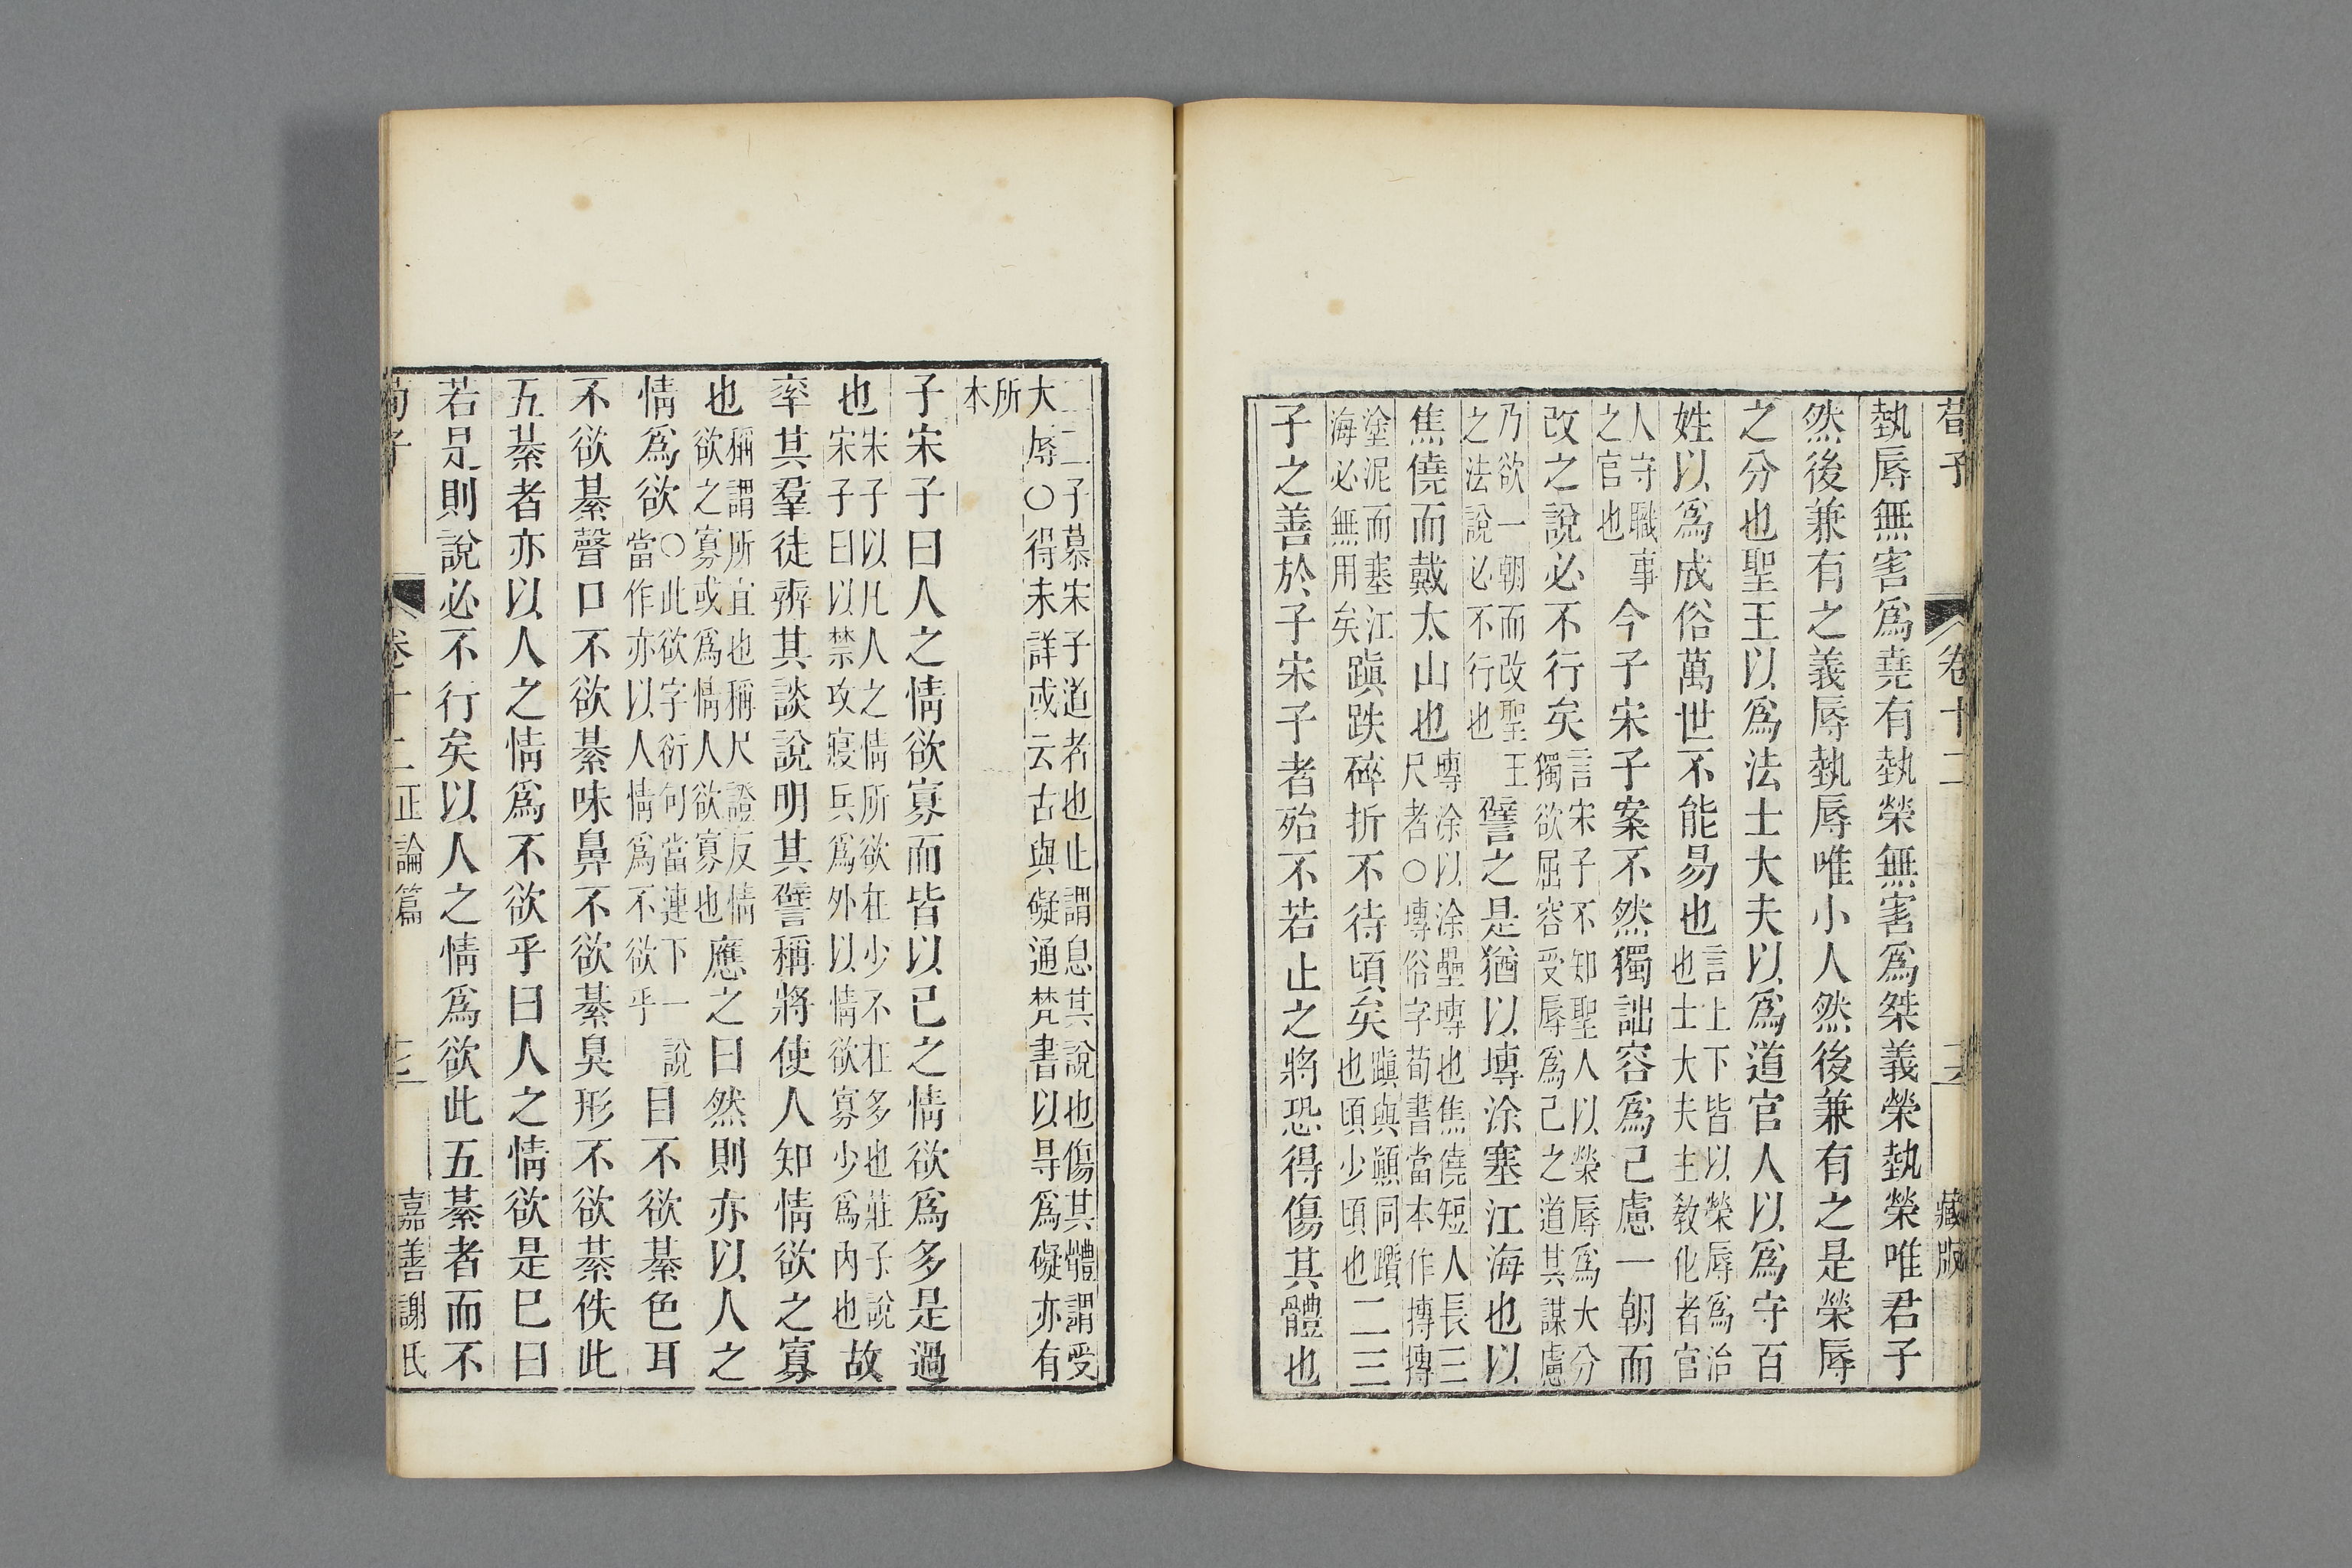 荀子　卷十二　藏版
埶辱無害爲堯有埶榮無害爲桀義榮埶榮唯君子
然後兼有之義辱埶辱唯小人然後兼有之是榮辱
之分也聖王以爲法士大夫以爲道官人以爲守百
姓以爲成俗萬世不能易也言上下皆以榮辱爲治也士大夫主敎化者官
人守職事之官也今子宋子案不然獨詘容爲己慮一朝而
改之說必不行矣言宋子不知聖人以榮辱爲大分獨欲屈容受辱爲己之道其謀慮
乃欲一朝而改聖王之法說必不行也譬之是猶以塼涂塞江海也以
焦僥而戴太山也塼涂以涂壘塼也焦僥短人長三尺者○塼俗字荀書當本作摶摶
塗泥而塞江海必無用矣蹎跌碎折不待頃矣蹎與顚同躓也頃少頃也二三
子之善於子宋子者殆不若止之將恐得傷其體也
二三子慕宋子道者也止謂息其說也傷其體謂受大辱○得未詳或云古與礙通梵書以㝵爲礙亦有
所本
子宋子曰人之情欲寡而皆以己之情欲爲多是過
也宋子以凡人之情所欲在少不在多也莊子說宋子曰以禁攻寢兵爲外以情欲寡少爲內也故
率其羣徒辨其談說明其譬稱將使人知情欲之寡
也稱謂所宜也稱尺證反情欲之寡或爲情人欲寡也應之曰然則亦以人之
情爲欲○此欲字衍句當連下一說當作亦以人情爲不欲乎目不欲綦色耳
不欲綦聲口不欲綦味鼻不欲綦臭形不欲綦佚此
五綦者亦以人之情爲不欲乎曰人之情欲是已曰
若是則說必不行矣以人之情爲欲此五綦者而不
荀子　卷十二正論篇　嘉善謝氏